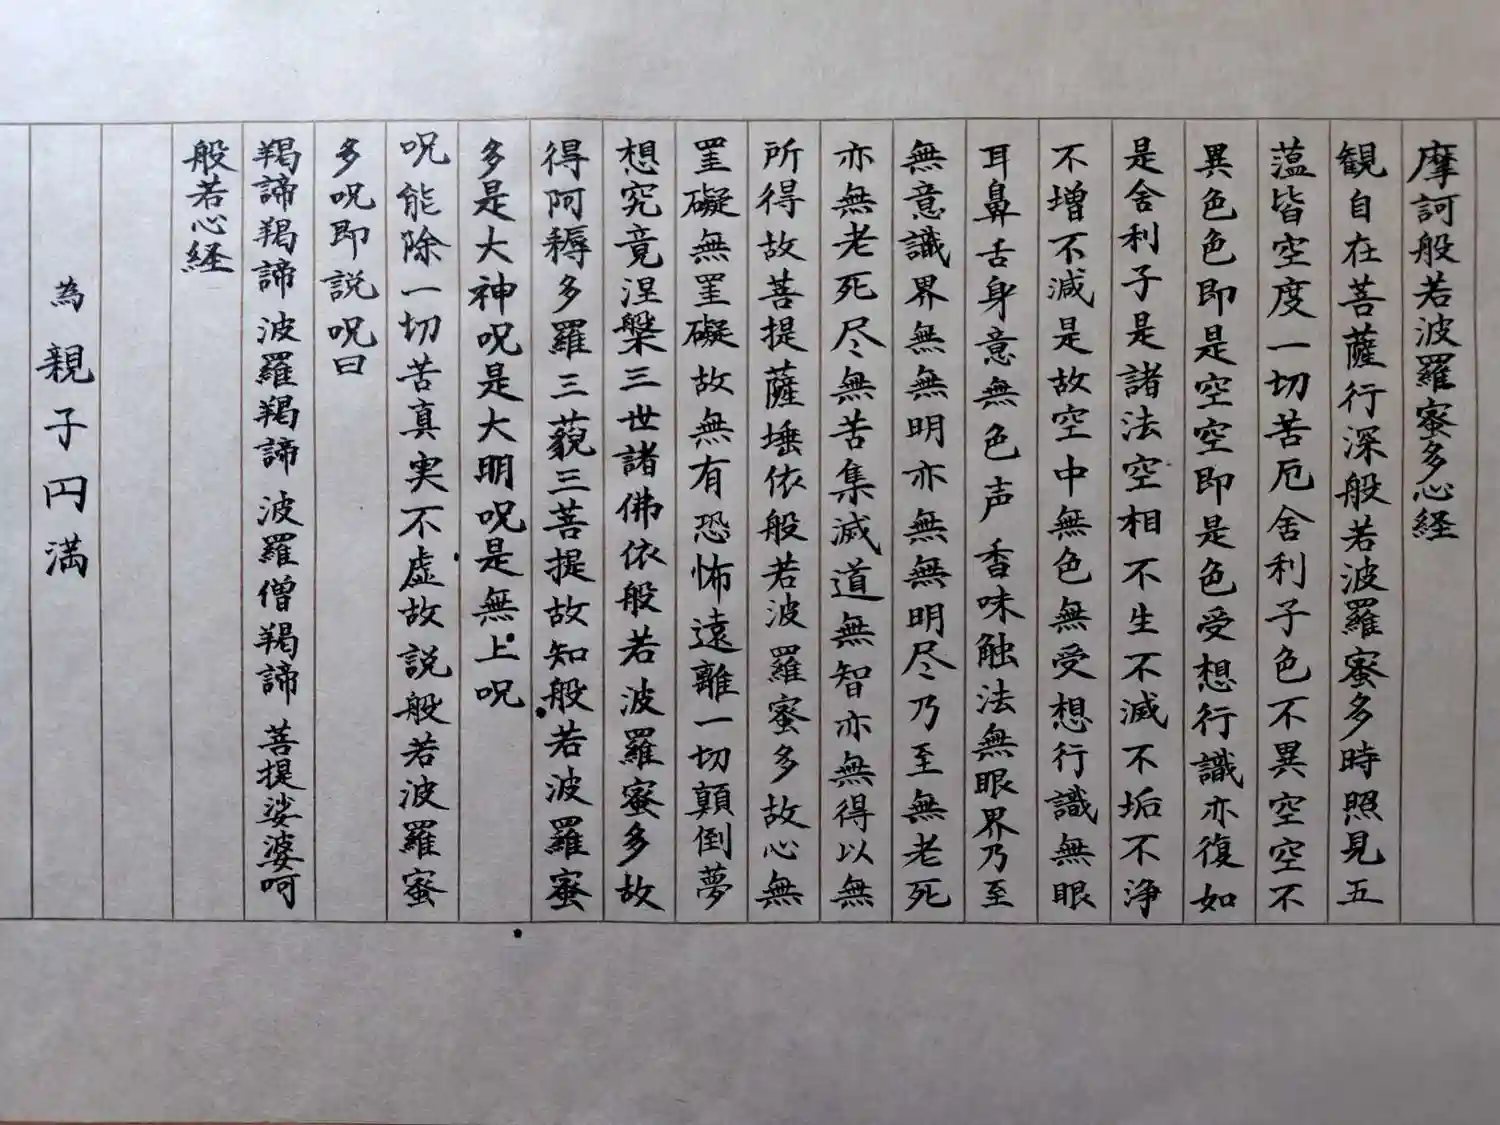 摩訶般若波羅蜜多心経
観自在菩薩行深般若波羅蜜多時照見五
薀皆空度一切苦厄舎利子色不異空空不
異色色即是空空即是色受想行識亦復如
是舎利子是諸法空相不生不滅不垢不浄
不増不減是故空中無色無受想行識無眼
耳鼻舌身意無色声香味触法無眼界乃至
無意識界無無明亦無無明尽乃至無老死
亦無老死尽無苦集滅道無智亦無得以無
所得故菩提薩埵依般若波羅蜜多故心無
罣礙無罣礙故無有恐怖遠離一切顛倒夢
想究竟涅槃三世諸佛依般若波羅蜜多故
得阿耨多羅三藐三菩提故知般若波羅蜜
多是大神呪是大明呪是無上呪
呪能除一切苦真実不虚故説般若波羅蜜
多呪即説呪曰
羯諦羯諦 波羅羯諦 波羅僧羯諦 菩提娑婆呵
般若心経
為親子円満